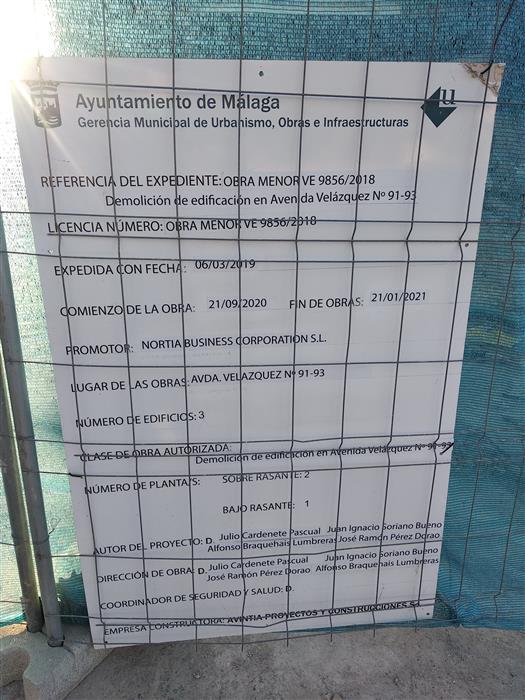 Ayuntamiento de Málaga
Gerencia Municipal de Urbanismo, Obras e Infraestructuras
u
REFERENCIA DEL EXPEDIENTE: OBRA MENOR VE 9856/2018
Demolición de edificación en Avenida Velázquez Nº 91-93
LICENCIA NÚMERO: OBRA MENOR VE 9856/2018
EXPEDIDA CON FECHA: 06/03/2019
COMIENZO DE LA OBRA: 21/09/2020 FIN DE OBRAS: 21/01/2021
PROMOTOR: NORTIA BUSINESS CORPORATION S.L.
LUGAR DE LAS OBRAS: AVDA. VELAZQUEZ Nº 91-93
NÚMERO DE EDIFICIOS: 3
CLASE DE OBRA AUTORIZADA:
Demolición de edificación en Avenida Velázquez Nº 91-93
NÚMERO DE PLANTA/S: SOBRE RASANTE: 2
BAJO RASANTE: 1
AUTOR DEL PROYECTO: D. Julio Cardenete Pascual Juan Ignacio Soriano Bueno
Alfonso Braquehais Lumbreras José Ramón Pérez Dorao
DIRECCIÓN DE OBRA: D. Julio Cardenete Pascual Juan Ignacio Soriano Bueno
José Ramón Pérez Dorao Alfonso Braquehais Lumbreras
COORDINADOR DE SEGURIDAD Y SALUD: D.
EMPRESA CONSTRUCTORA: AVINTIA PROYECTOS Y CONSTRUCCIONES SL